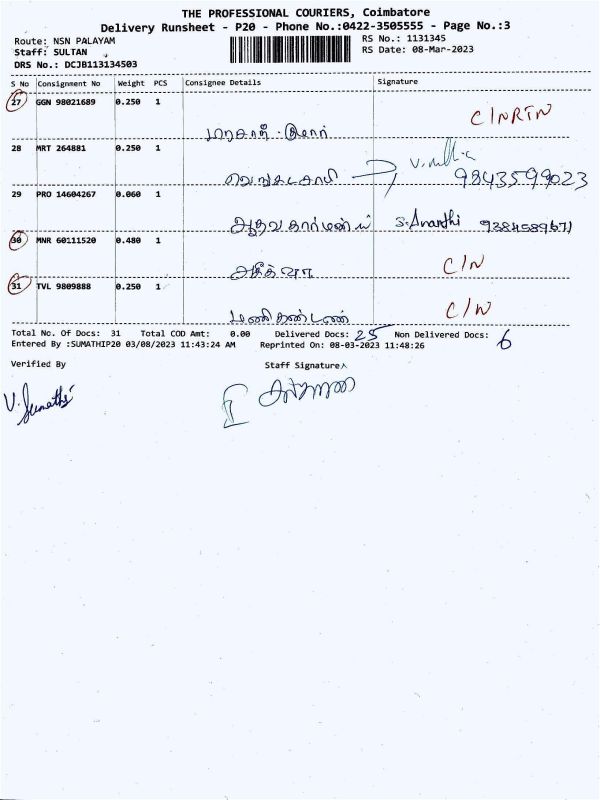 THE PROFESSIONAL COURIERS, Coimbatore
Delivery Runsheet - P20 - Phone No.:0422-3505555 - Page No.:3
Route: NSN PALAYAM RS No.: 1131345
Staff: SULTAN RS Date: 08-Mar-2023
DRS No.: DCJB113134503
S No Consignment No Weight PCS Consignee Details Signature
27 GGN 98021689 0.250 1
C/NRTN
28 MRT 264881 0.250 1
வெங்கடசாமி 9843599023
29 PRO 14604267 0.060 1
S. Ananthi 9384589671
30 MNR 60111520 0.480 1
C/N
31 TVL 9809888 0.250 1
மணிகண்டண் C/N
Total No. Of Docs: 31 Total COD Amt: 0.00 Delivered Docs: 25 Non Delivered Docs: 6
Entered By :SUMATHIP20 03/08/2023 11:43:24 AM Reprinted On: 08-03-2023 11:48:26
Verified By Staff Signature
V. Sumathi